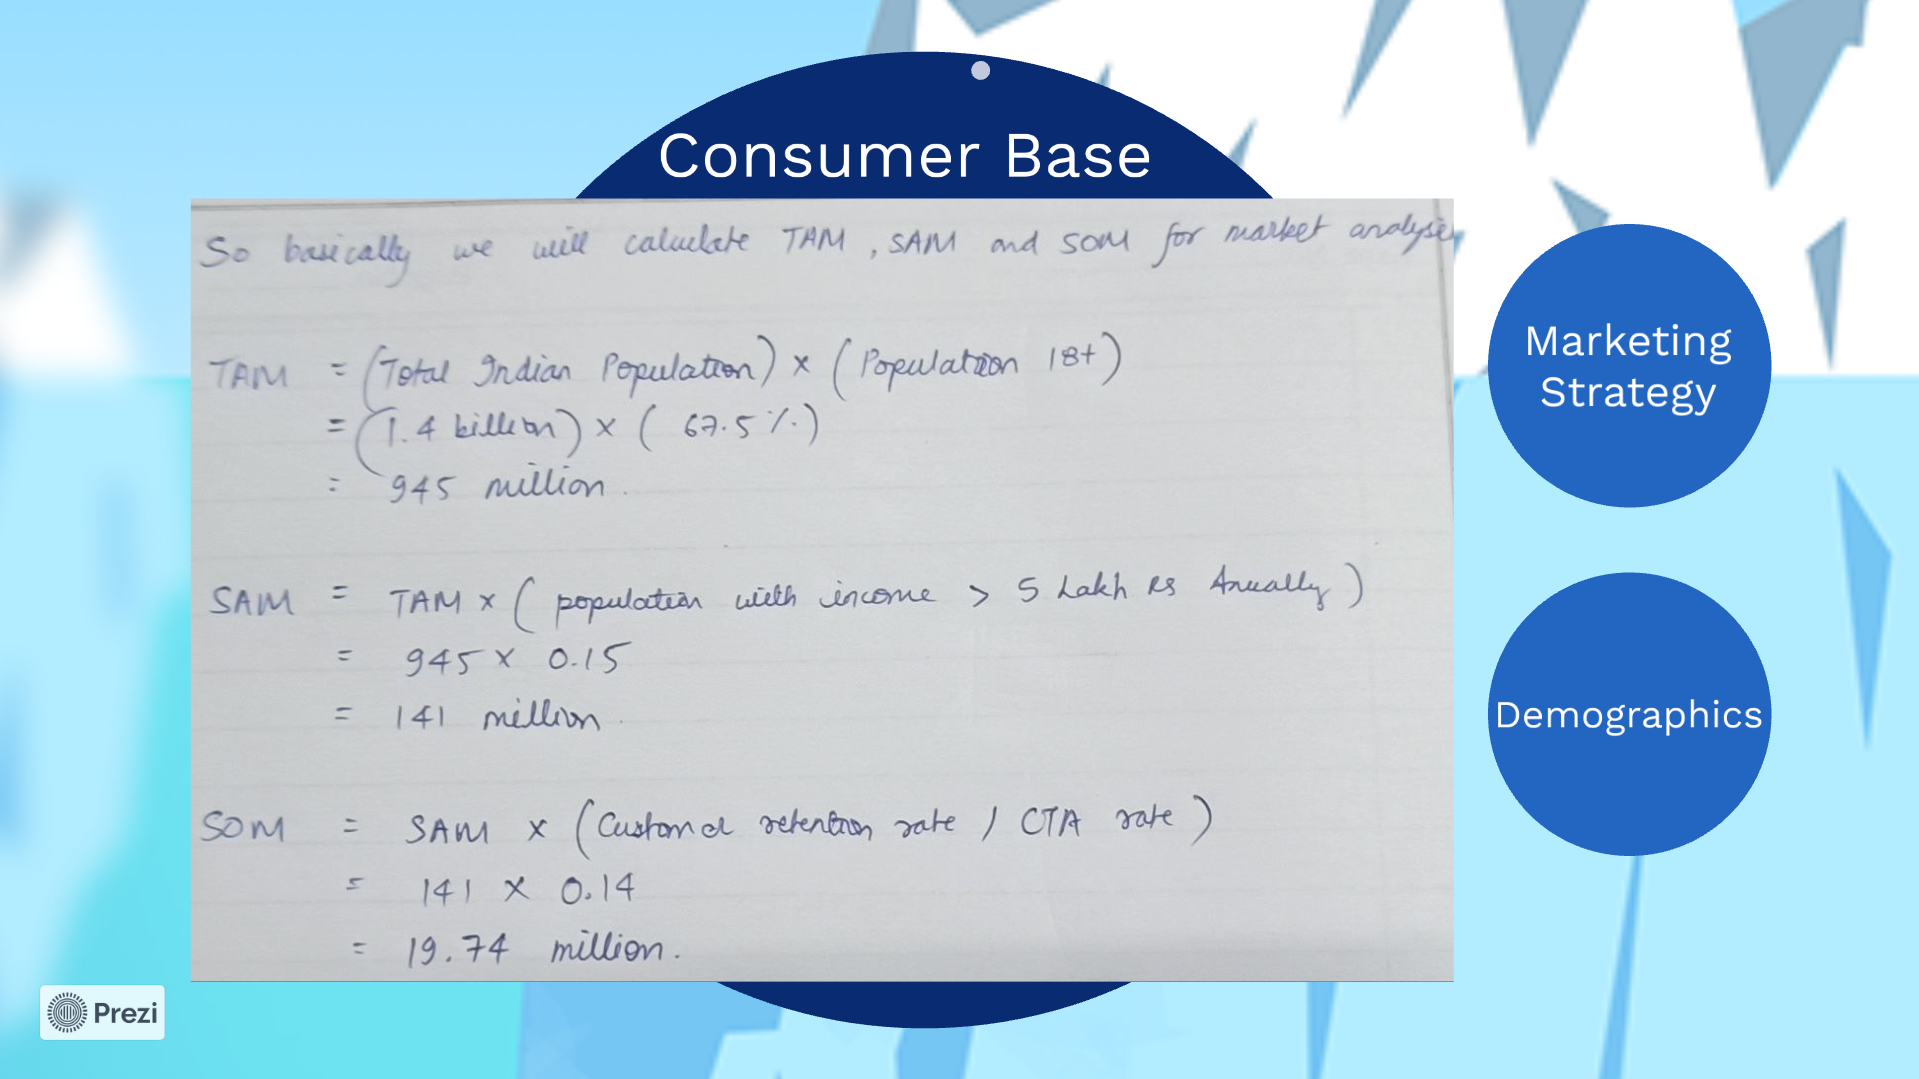 Consumer Base
So basically we will calculate TAM, SAM and SOM for market analysis
TAM = (Total Indian Population) × (Population 18+)
= (1.4 billion) × (67.5%)
= 945 million.
SAM = TAM × (population with income > 5 Lakh Rs Anually)
= 945 × 0.15
= 141 million.
SOM = SAM × (Customer retention rate / CTA rate)
= 141 × 0.14
= 19.74 million.
Marketing
Strategy
Demographics
Prezi